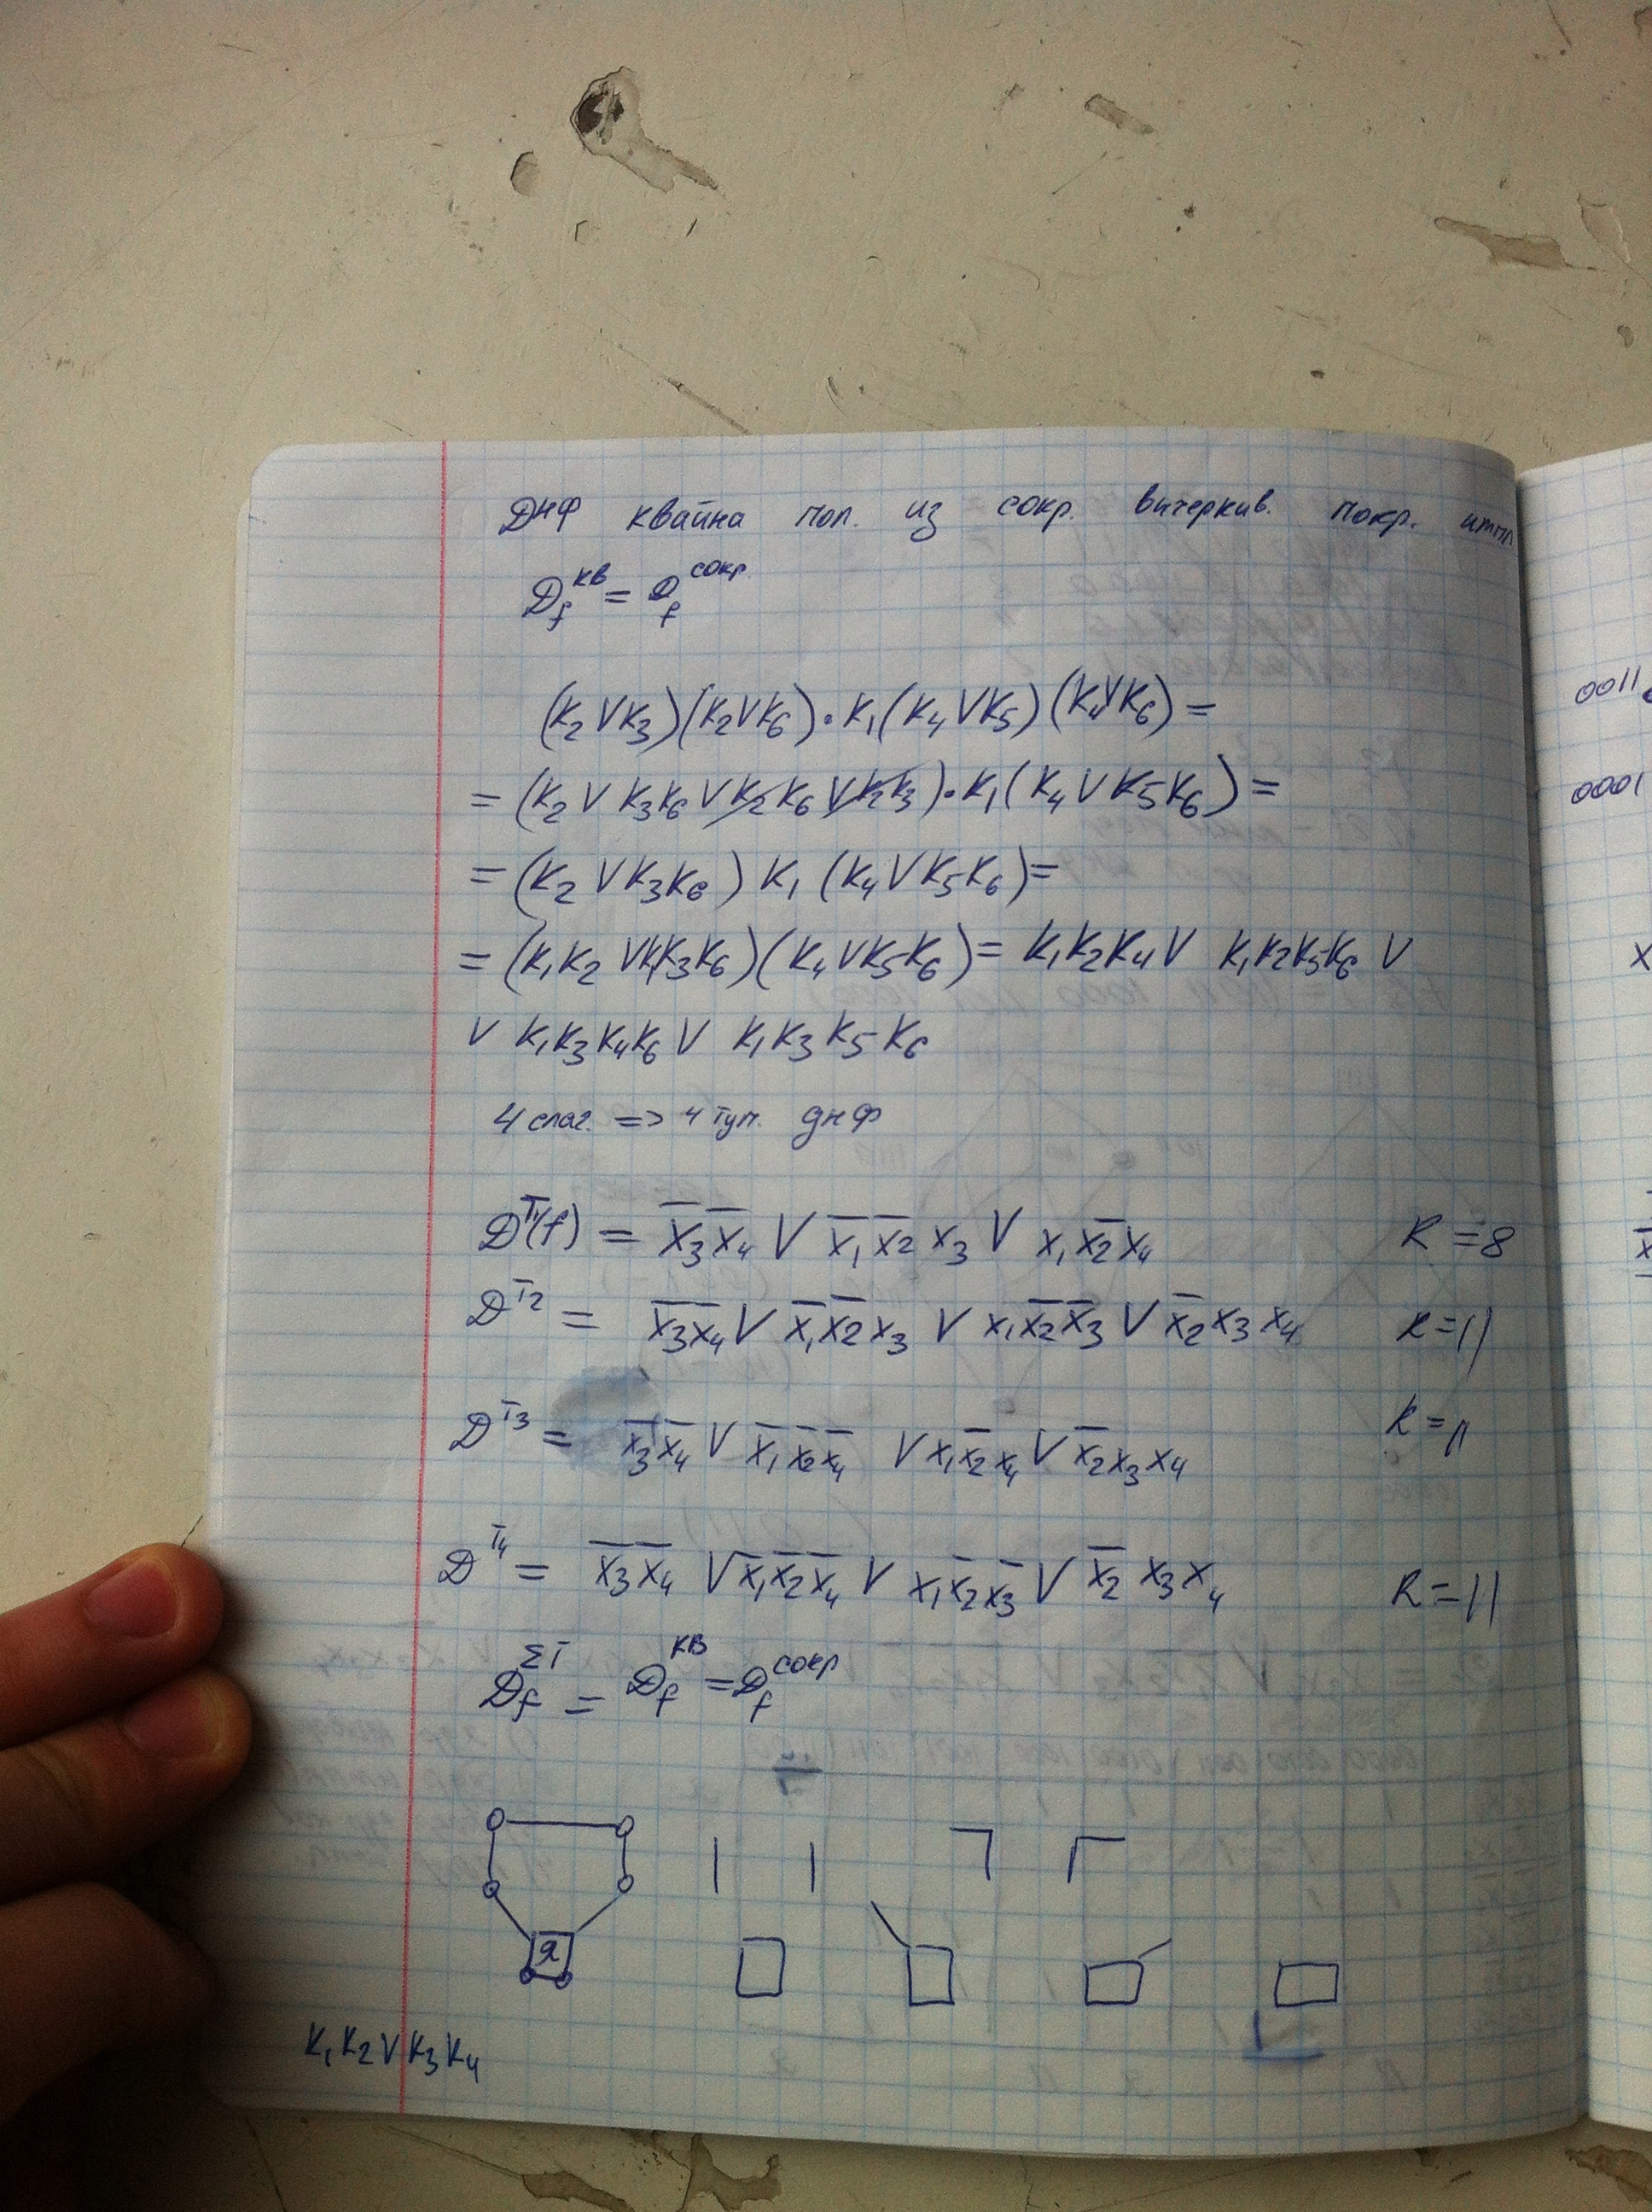 ДНФ Квайна пол. из сокр. вычеркив. покр. имп
D_f^{кв} = D_f^{сокр}
(K₂ ∨ K₃)(K₂ ∨ K₆) · K₁(K₄ ∨ K₅)(K₄ ∨ K₆) =
= (K₂ ∨ K₃K₆ ∨ K₂K₆ ∨ K₂K₃) · K₁(K₄ ∨ K₅K₆) =
= (K₂ ∨ K₃K₆) K₁ (K₄ ∨ K₅K₆) =
= (K₁K₂ ∨ K₁K₃K₆)(K₄ ∨ K₅K₆) = K₁K₂K₄ ∨ K₁K₂K₅K₆ ∨
∨ K₁K₃K₄K₆ ∨ K₁K₃K₅K₆
4 слаг. => 4 туп. днф
D^{T₁}(f) = x̅₃x̅₄ ∨ x̅₁x̅₂x₃ ∨ x₁x̅₂x₄ R=8
D^{T₂} = x̅₃x̅₄ ∨ x̅₁x̅₂x₃ ∨ x₁x̅₂x̅₃ ∨ x̅₂x₃x₄ R=11
D^{T₃} = x̅₃x̅₄ ∨ x̅₁x̅₂x̅₄ ∨ x₁x̅₂x₄ ∨ x̅₂x₃x₄ R=11
D^{T₄} = x̅₃x̅₄ ∨ x̅₁x̅₂x̅₄ ∨ x₁x̅₂x̅₃ ∨ x̅₂x₃x₄ R=11
D_f^{ΣT} = D_f^{кв} = D_f^{сокр}
я
K₁K₂ ∨ K₃K₄
0011
0001
x
x̅